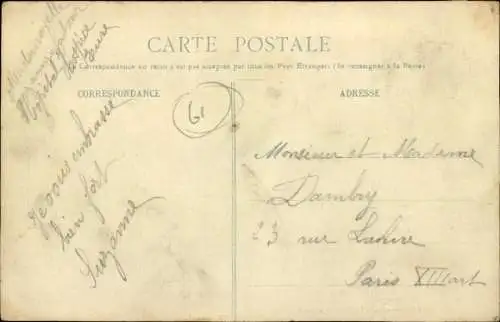 Mademoiselle
Hôpital Hospice
Eure
CARTE POSTALE
La Correspondance au recto n'est pas acceptée par tous les Pays Étrangers (Se renseigner à la Poste)
CORRESPONDANCE
ADRESSE
61
Je vous embrasse
bien fort
Suzanne
Monsieur et Madame
Dambry
23 rue Lahire
Paris XIII art